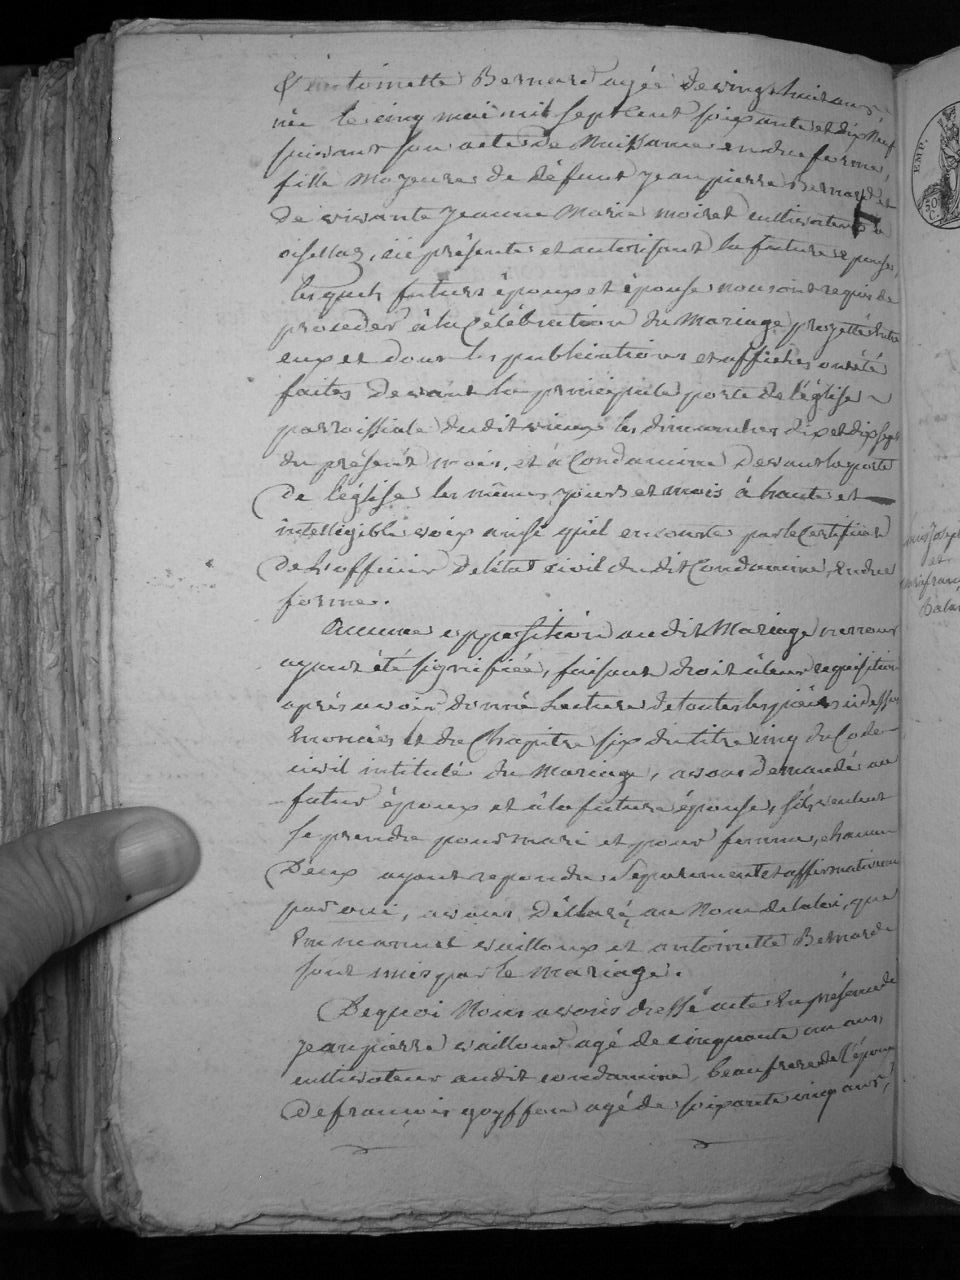 & antoinette Bernard agée de vingt huit ans,
née le cinq mai mil sept cent soixante et dix neuf
suivant son acte de Naissance en due forme,
fille Majeure de défunt jean pierre Bernard et
de vivante jeanne Marie moiret cultivateurs a
oisellaz, ici présente et autorisant la future épouse,
lesquels futurs époux et épouse nous ont requis de
proceder à la Célébration du Mariage projetté entre
eux et dont les publications et affiches ont été
faites devant la principale porte de l'église
parroissiale dudit vieux les dimanches dix et dix sept
du présent mois, et à Condamine devant la porte
de l'église les mêmes jours et mois à haute et
intelligible voix ainsi qu'il en conste par le Certificat
de L'officier de l'état civil dudit Condamine, en due
forme.
Aucune opposition audit Mariage ne nous
ayant été signifiée, faisant droit à leur requisition
après avoir donné Lecture de toutes les pièces ci dessus
Enoncées et du Chapitre six du titre cinq du Code
civil intitulé du Mariage, avons demandé au
futur époux et à la future épouse, s'ils veulent
se prendre pour mari et pour femme, chacun
d'eux ayant repondu séparément et affirmativement
par oui, avons déclaré au Nom de la loi, que
Emmanuel vailloux et antoinette Bernard
sont unis par le mariage.
De quoi Nous avons dressé acte En présence de
jean pierre vailloux agé de cinquante un ans,
cultivateur audit condamine, beaufrere de l'époux
de françois goyffon agé de soixante cinq ans,
EMP.
50
C.
Joseph
et